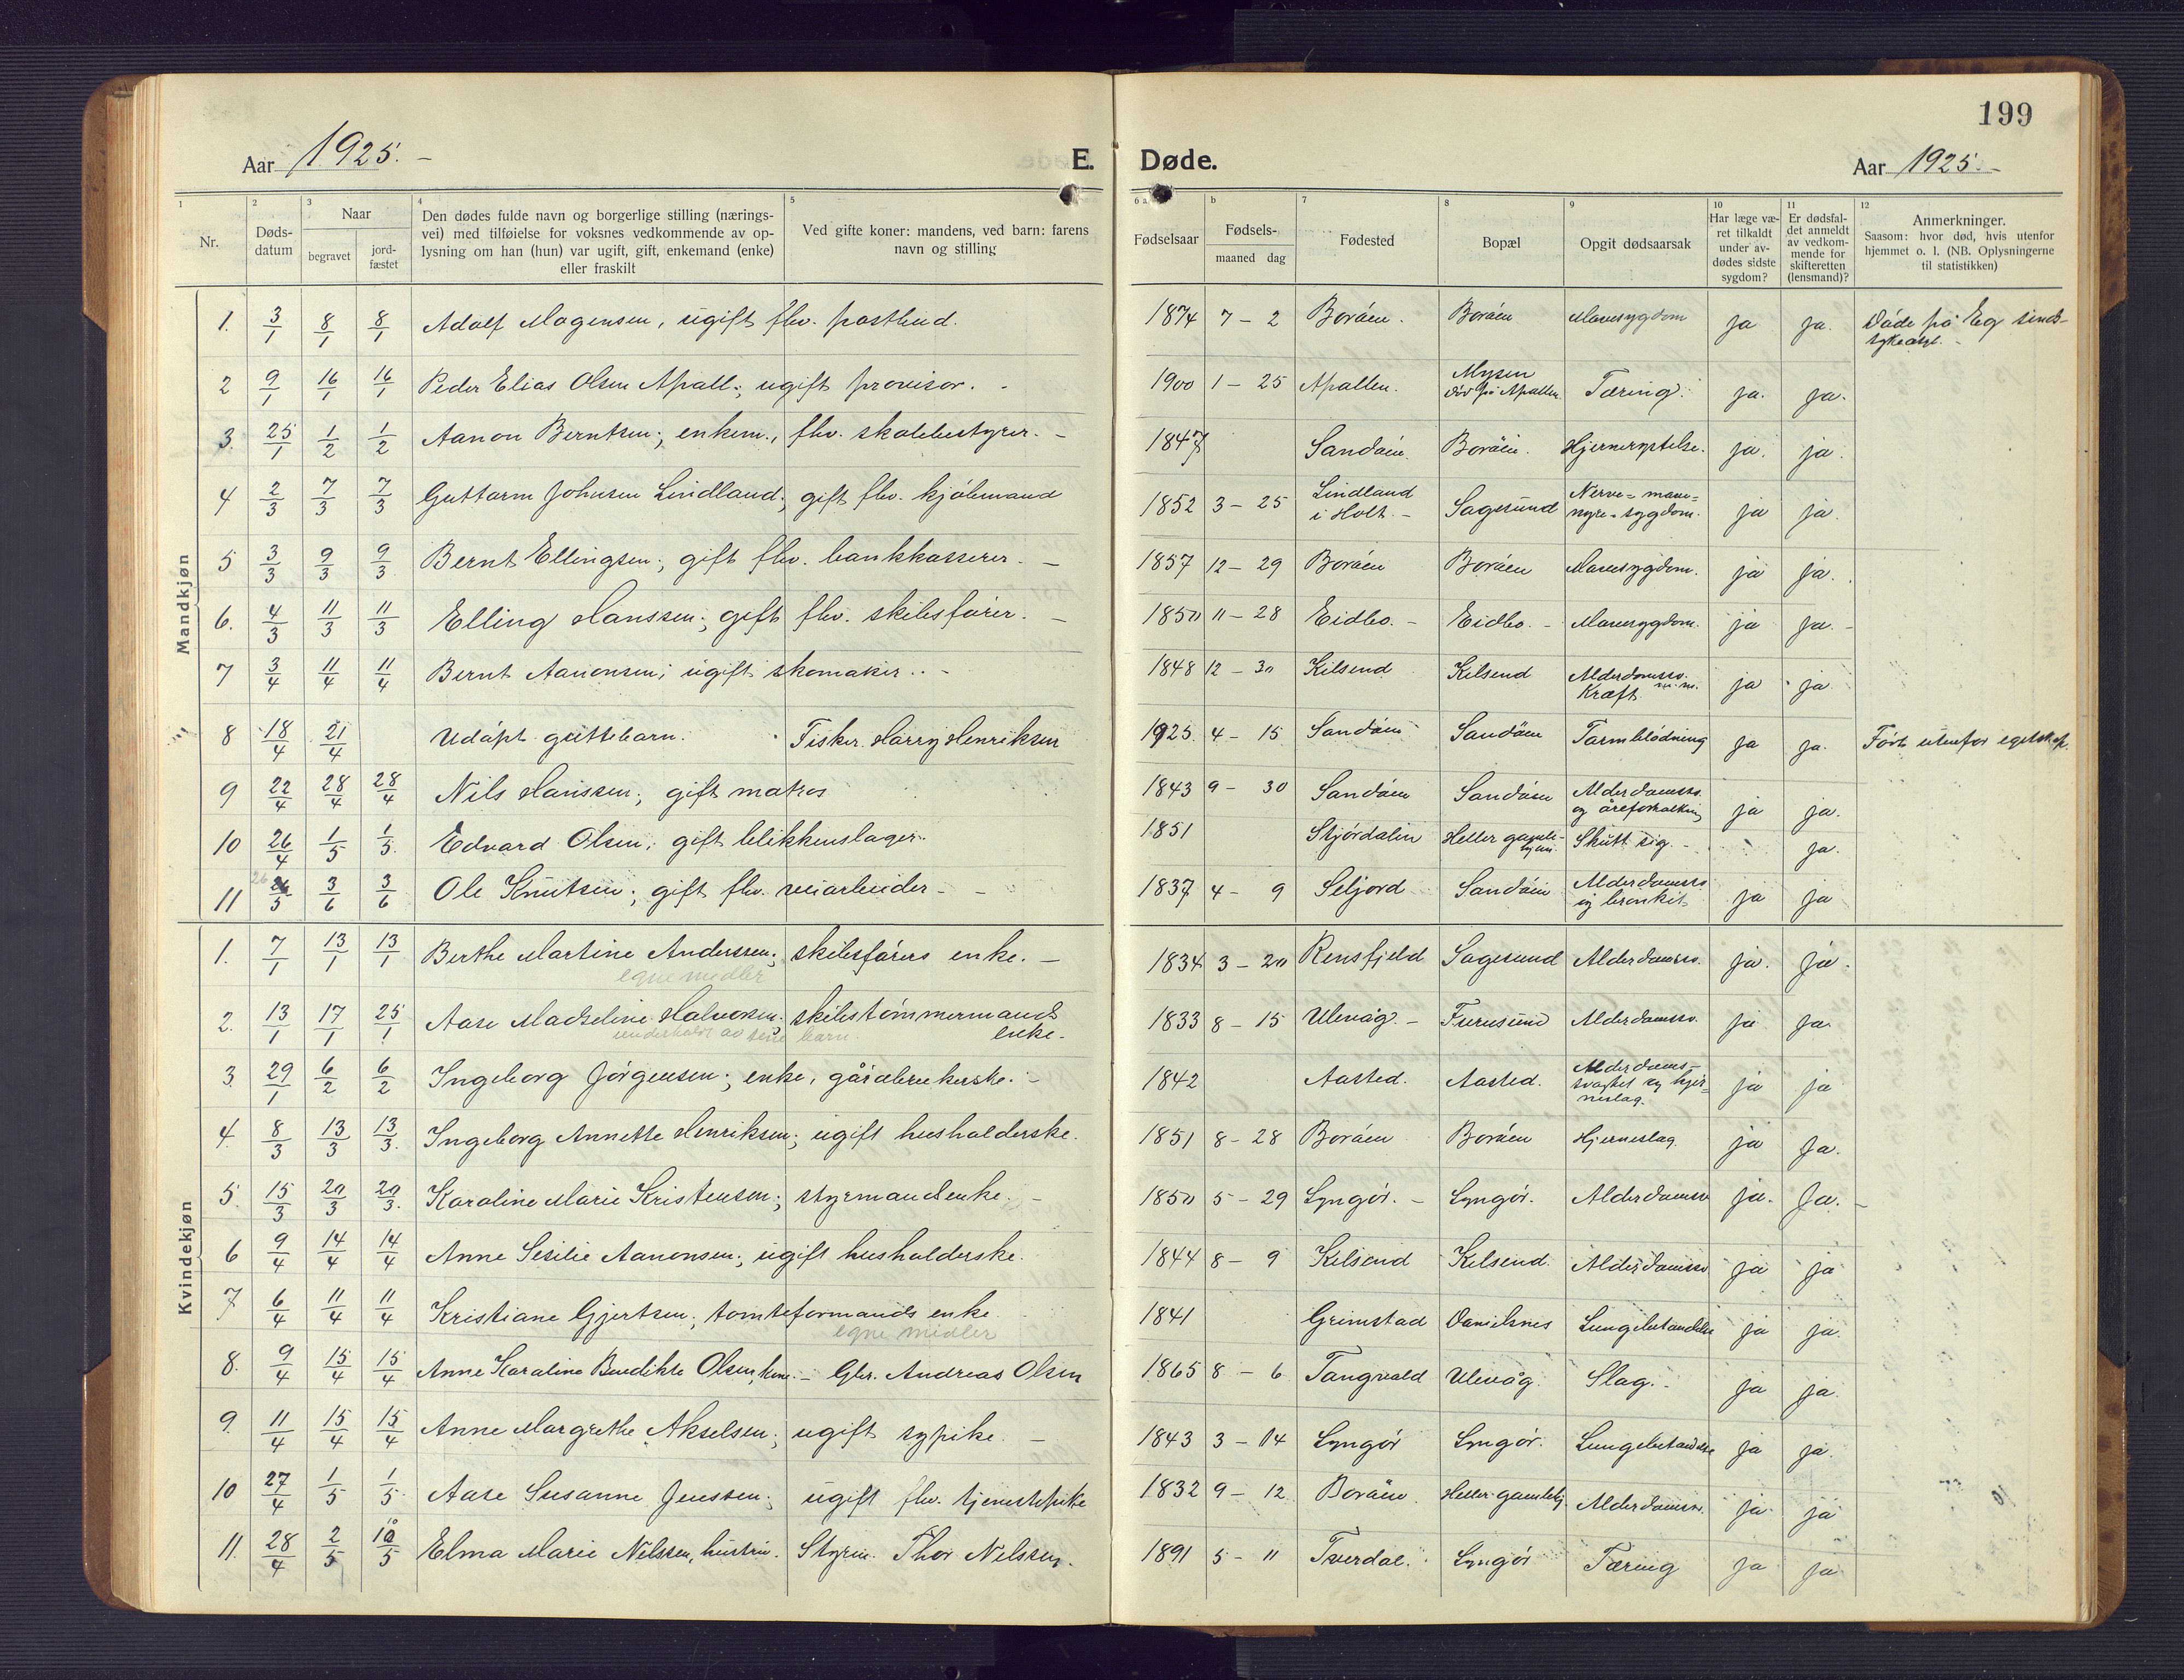 199
Aar 1925. –
E. Døde.
Aar 1925. –
1 Nr.
2 Døds-datum
3 Naar begravet jord-fæstet
4 Den dødes fulde navn og borgerlige stilling (nærings-vei) med tilføielse for voksnes vedkommende av op-lysning om han (hun) var ugift, gift, enkemand (enke) eller fraskilt
5 Ved gifte koner: mandens, ved barn: farens navn og stilling
6 a Fødselsaar
b Fødsels- maaned dag
7 Fødested
8 Bopæl
9 Opgit dødsaarsak
10 Har læge væ-ret tilkaldt under av-dødes sidste sygdom?
11 Er dødsfal-det anmeldt av vedkom-mende for skifteretten (lensmand)?
12 Anmerkninger. Saasom: hvor død, hvis utenfor hjemmet o. l. (NB. Oplysningerne til statistikken)
Mandkjøn
1. 3/1 8/1 8/1 Adolf Mogensen, ugift fhv. postbud. 1874 7 – 2 Borøen. Borøen Mavesygdom ja ja. Døde på Eg sinds-sykeasyl. –
2 9/1 16/1 16/1 Peder Elias Olsen Apall; ugift provisor. – 1900 1 – 25 Apallen. Mysen død på Apallen Tæring. ja. ja.
3. 25/1 1/2 1/2 Aanon Berntsen; enkem., fhv. skolebestyrer. – 1847 Sandøen. Borøen. Hjernerystelse. ja. ja.
4 2/3 7/3 7/3 Guttorm Johnsen Lindland; gift fhv. kjøbmand 1852 3 – 25 Lindland i Holt. – Sagesund Nerve- mave- nyre- sygdom. ja ja.
5 3/3 9/3 9/3 Bernt Ellingsen; gift fhv. bankkasserer. – 1857 12 – 29 Borøen Borøen Mavesygdom. ja ja.
6. 4/3 11/3 11/3 Elling Hanssen; gift fhv. skibsfører. – 1850 11 – 28 Eidbo. – Eidbo. – Mavesygdom. ja ja. –
7 3/4 11/4 11/4 Bernt Aanonsen; ugift skomaker. – 1848 12 – 30 Kilsend Kilsend Alderdomssv. Kræft ja ja
8 18/4 21/4 Udøpt guttebarn. Fisker Harry Henriksen 1925. 4 – 15 Sandøen Sandøen Tarmblødning ja ja. Født utenfor egteskap.
9 22/4 28/4 28/4 Nils Hanssen; gift matros 1843 9 – 30 Sandøen Sandøen Alderdomssv. og åreforkalkning ja ja.
10 26/4 1/5 1/5 Edvard Olsen; gift blikkenslager. 1851 Stjørdalen Heller gamle-hjem. Skutt sig. – ja.
11 26/5 3/6 3/6 Ole Knutsen; gift fhv. veiarbeider – – 1837 4 – 9 Seljord Sandøen Alderdomssv. og bronkit ja ja
Kvindekjøn
1. 7/1 13/1 13/1 Berthe Martine Anderssen; skibsførers enke. – 1834 3 – 20 Rensfjeld Sagesund Alderdomssv. ja. ja.
egne midler
2. 13/1 17/1 25/1 Aase Madseline Halvorsen. skibstømmermands enke. 1833 8 – 15 Ulevåg. – Furusund Alderdomssv. ja ja.
underholdt av sine barn.
3. 29/1 6/2 6/2 Ingeborg Jørgensen; enke, gårdbrukerske. – 1842 Aasted. Aasted. Alderdoms-svaghet og hjer-neslag. ja ja
4. 8/3 13/3 13/3. Ingeborg Annette Henriksen; ugift husholderske. 1851 8 – 28 Borøen Borøen Hjerneslag. ja ja.
5. 15/3 20/3 20/3. Karoline Marie Kristensen; styrmandsenke. – 1850 5 – 29 Lyngør. – Lyngør. Alderdomssv ja. Ja. –
6 9/4 14/4 14/4 Anne Sesilie Aanonsen; ugift husholderske. 1844 8 – 9 Kilsend Kilsend. Alderdomssv ja ja
7 6/4 11/4 11/4 Kristiane Gjertsen; tomteformands enke. 1841 Grimstad Danielsnes Lungebetændelse ja ja.
egne midler
8. 9/4 15/4 15/4 Anne Karoline Benedikte Olsen, kone. – Gbr. Andreas Olsen 1865 8 – 6 Tangvald Ulevåg. Slag. – ja ja.
9. 11/4 15/4 15/4 Anne Margrethe Akselsen; ugift sypike. – 1843 3 – 14 Lyngør Lyngør. Lungebetændelse ja ja.
10 27/4 1/5 1/5 Aase Susanne Jenssen; ugift fhv. tjenestepike 1832 9 – 12 Borøen. Heller gamlehj. Alderdomssv. ja ja
11. 28/4 2/5 10/5 Elma Marie Nilssen, hustru. Styrm. Thor Nilssen. 1891 5 – 11 Tverdal. Lyngør Tæring ja ja